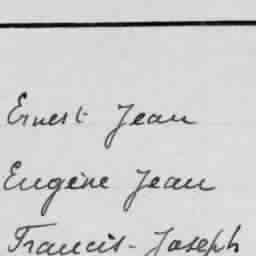 Ernest Jean
Eugène Jean
Francis-Joseph